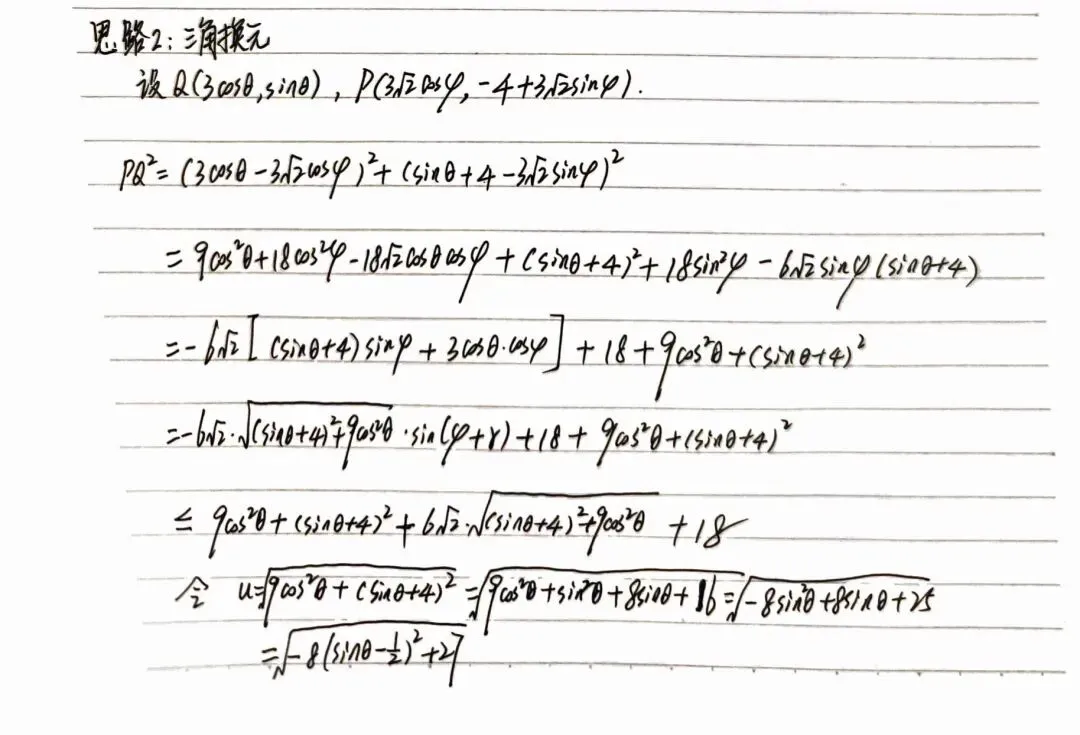 思路2：三角换元
设Q(3cosθ,sinθ)，P(3√2cosφ,-4+3√2sinφ).
PQ²=(3cosθ-3√2cosφ)²+(sinθ+4-3√2sinφ)²
=9cos²θ+18cos²φ-18√2cosθcosφ+(sinθ+4)²+18sin²φ-6√2sinφ(sinθ+4)
=-6√2[(sinθ+4)sinφ+3cosθ·cosφ]+18+9cos²θ+(sinθ+4)²
=-6√2·√((sinθ+4)²+9cos²θ)·sin(φ+γ)+18+9cos²θ+(sinθ+4)²
≤9cos²θ+(sinθ+4)²+6√2·√((sinθ+4)²+9cos²θ)+18
令 u=√(9cos²θ+(sinθ+4)²)=√(9cos²θ+sin²θ+8sinθ+16)=√(-8sin²θ+8sinθ+25)
=√(-8(sinθ-1/2)²+27)